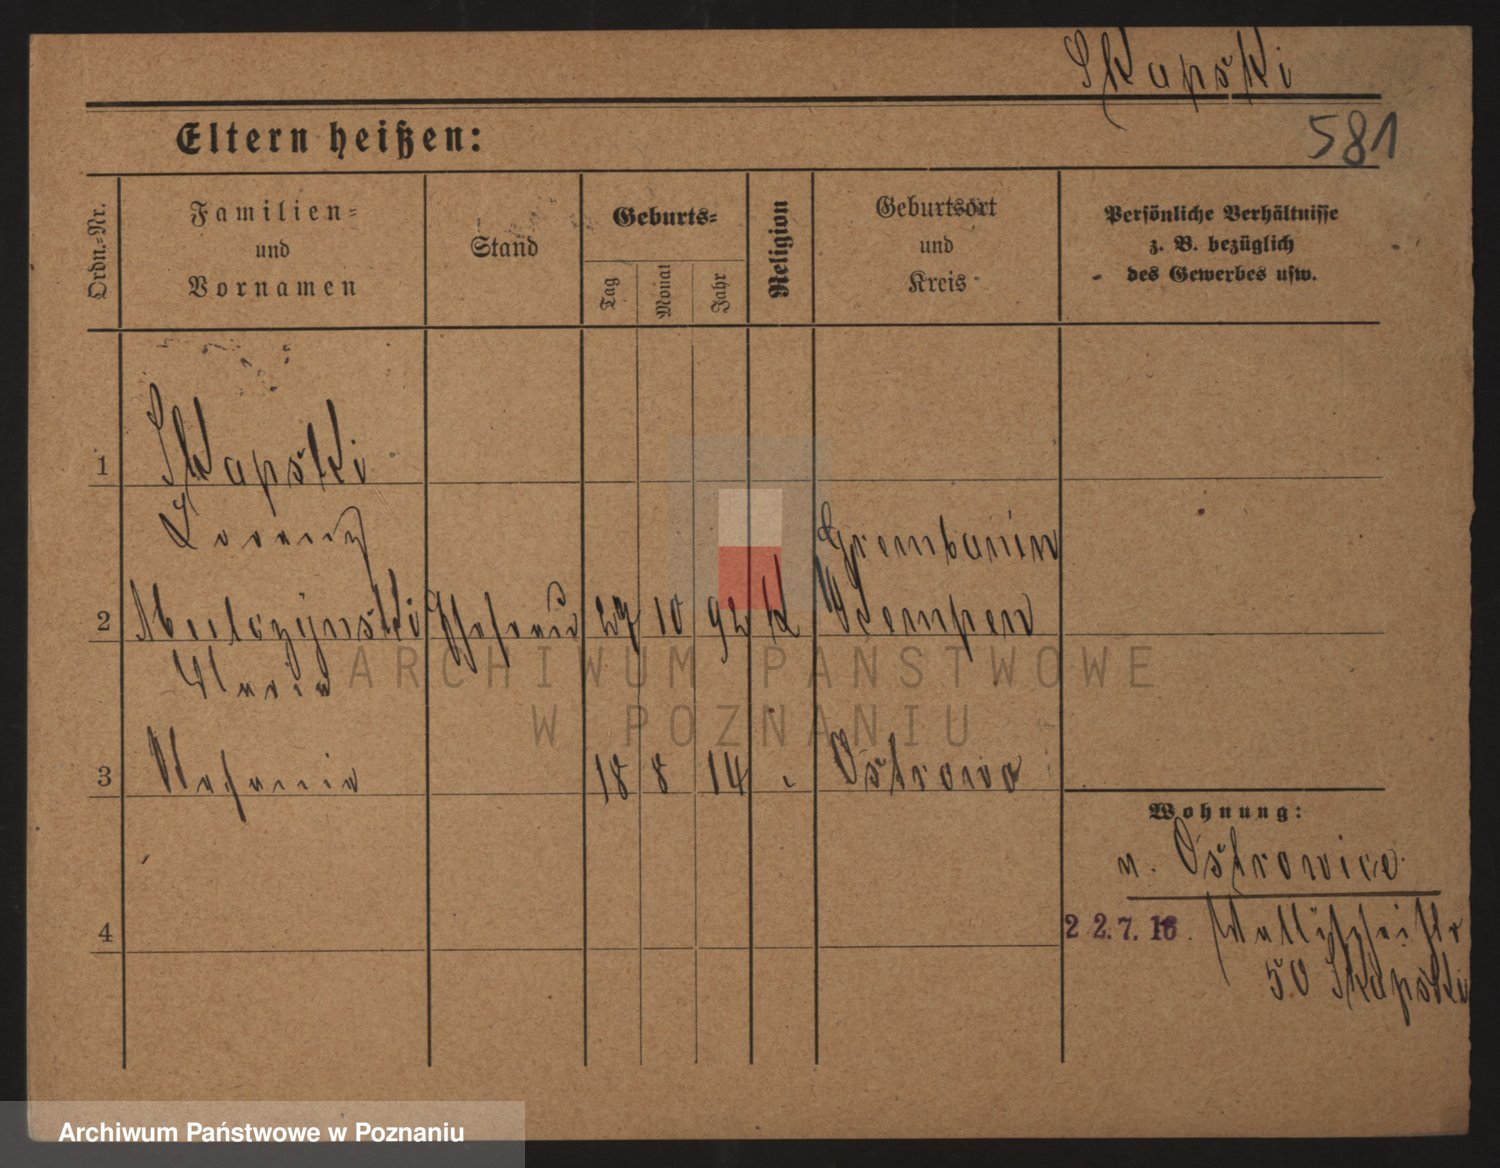 Skapski
581
Eltern heißen:
Ordn.-Nr.
Familien-
und
Vornamen
Stand
Geburts-
Tag
Monat
Jahr
Religion
Geburtsort
und
Kreis
Persönliche Verhältnisse
z. B. bezüglich
des Gewerbes usw.
1
Skapski
Lorenz
Grembanin
2
Ehefrau 27 10 92 K Kempen
Maria
3
18 8 14 Ostrowo
Wohnung:
v. Ostrowice
4
22.7.16. Wallischeistr
50 Skapski
ARCHIWUM PAŃSTWOWE
W POZNANIU
Archiwum Państwowe w Poznaniu